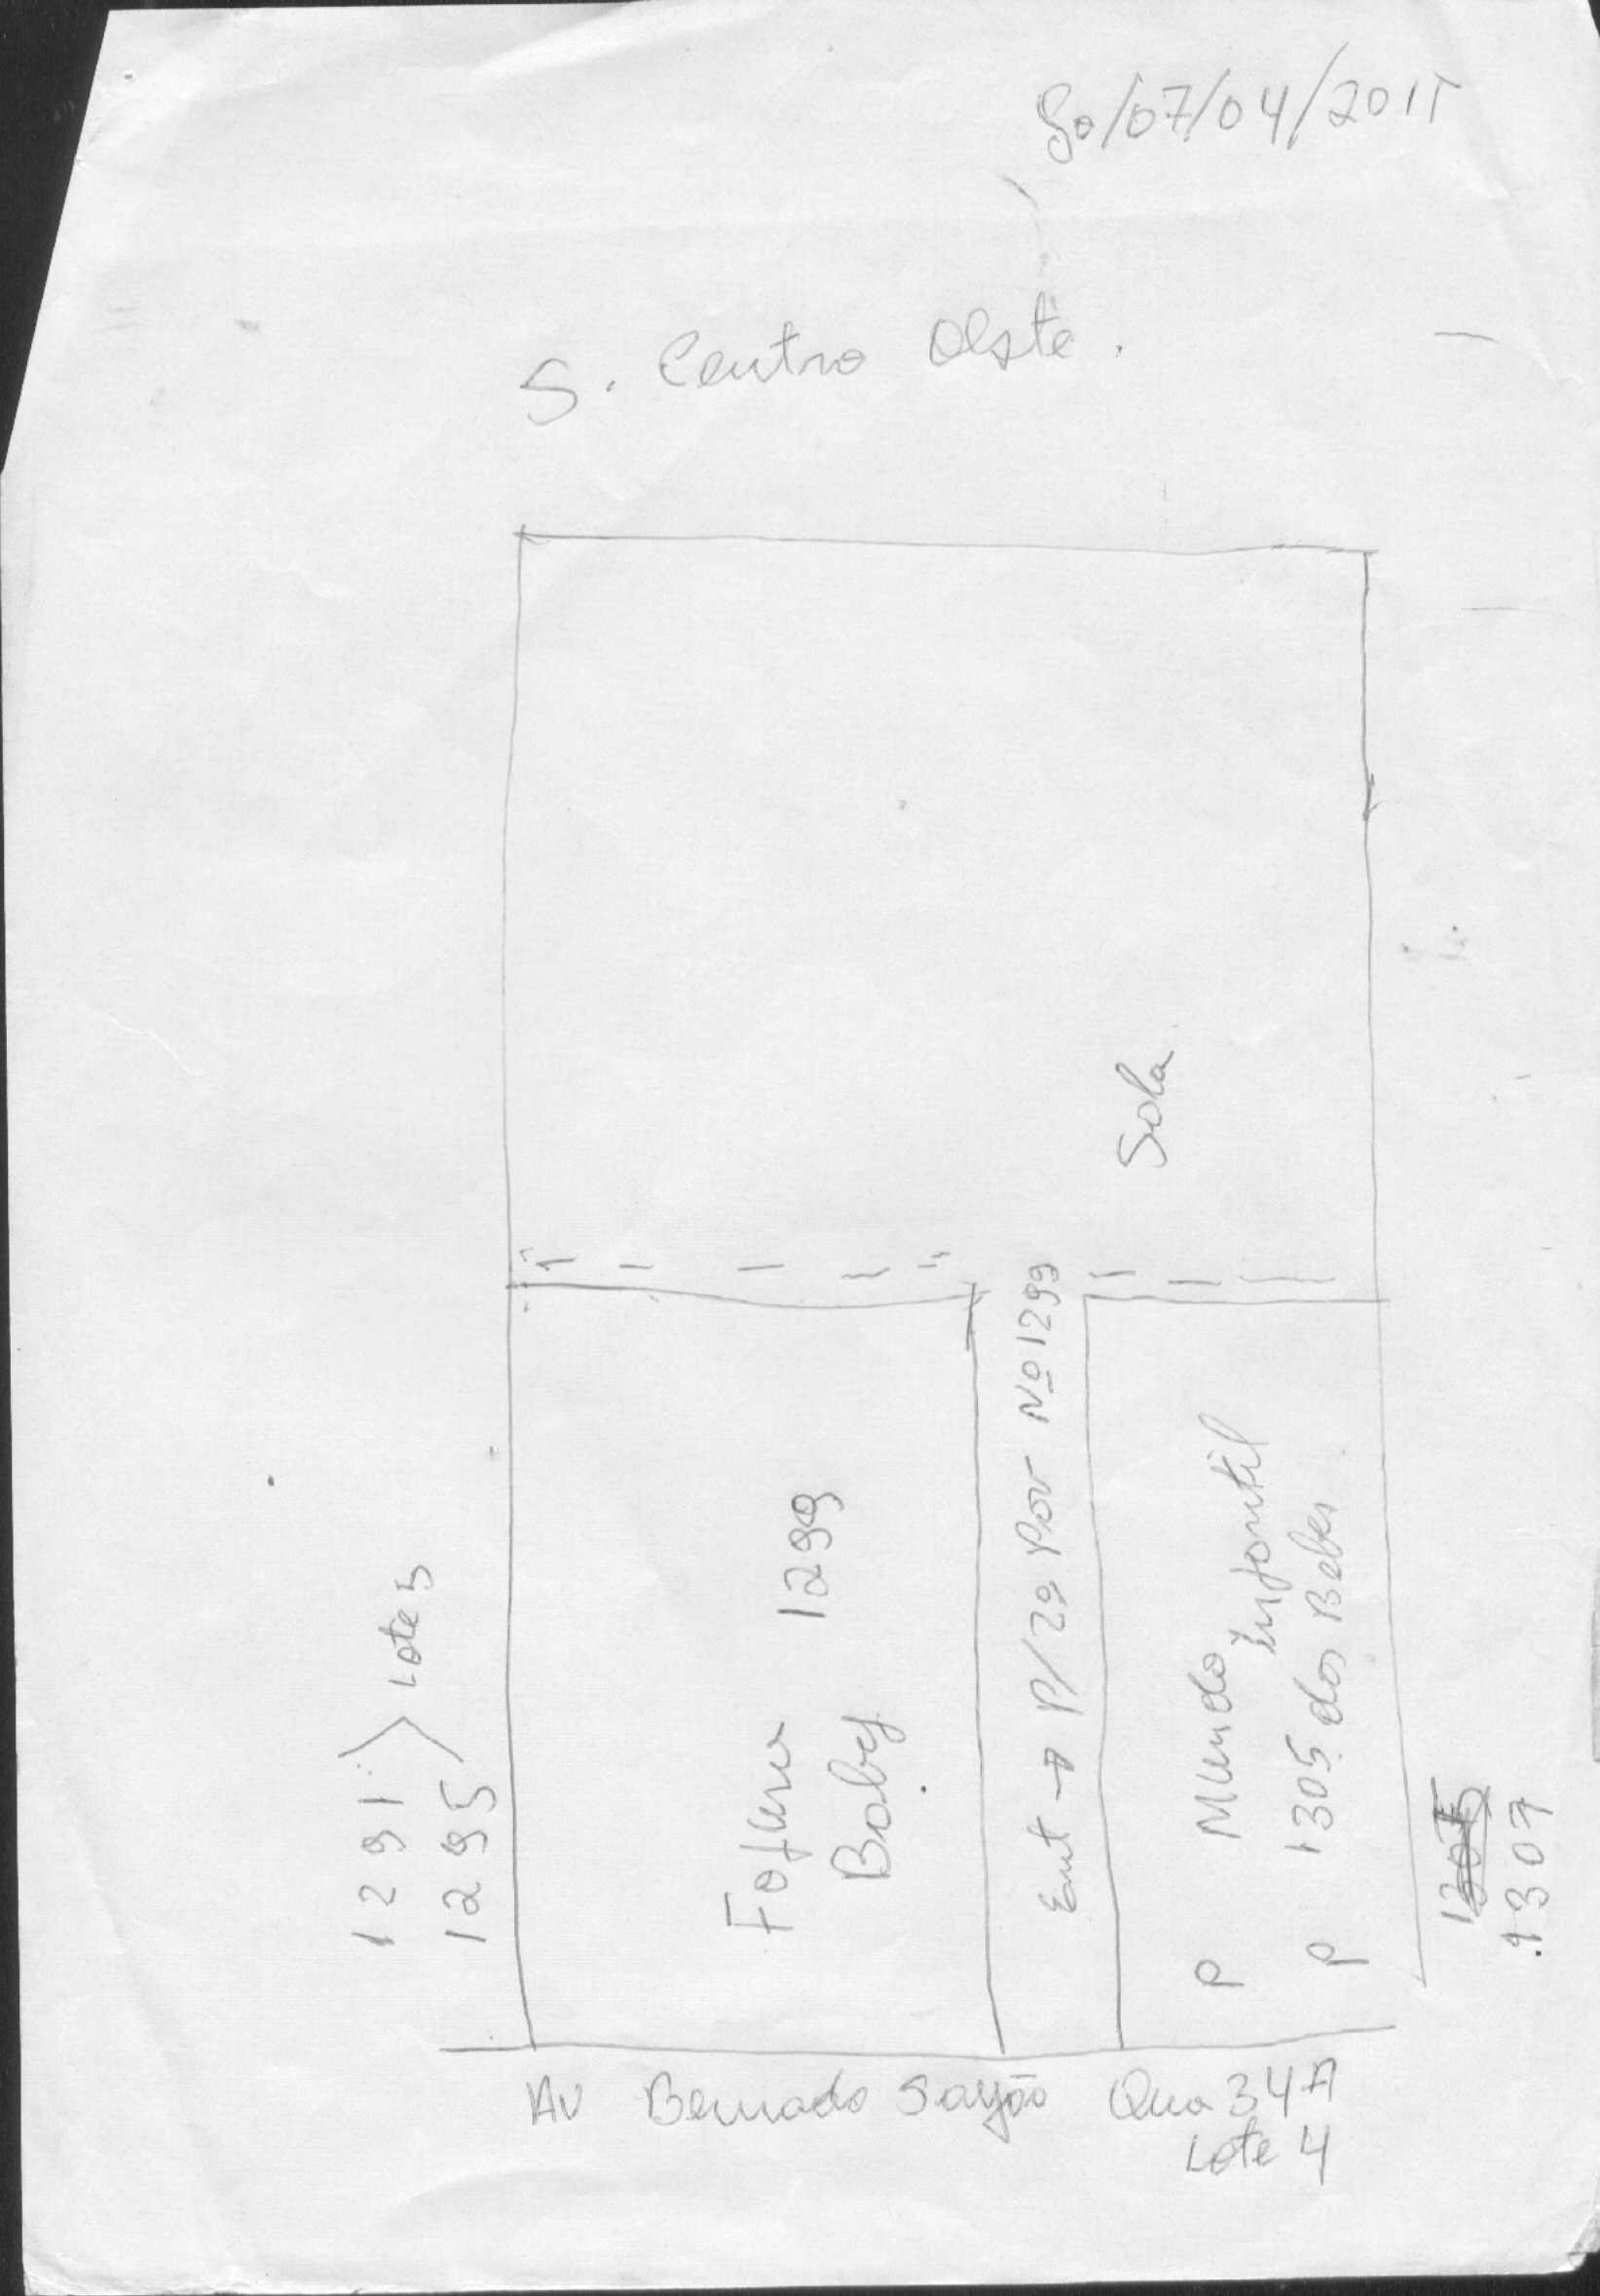 Go/07/04/2015
S. Centro Oeste.
Sala
1291
1295
Lote 5
Fofura
Baby
1299
Ent → P/2º Pav Nº 1299
P Mundo
Infantil
P 1305 dos Bebes
1305
1307
Av Bernado Sayão Qua 34A
Lote 4